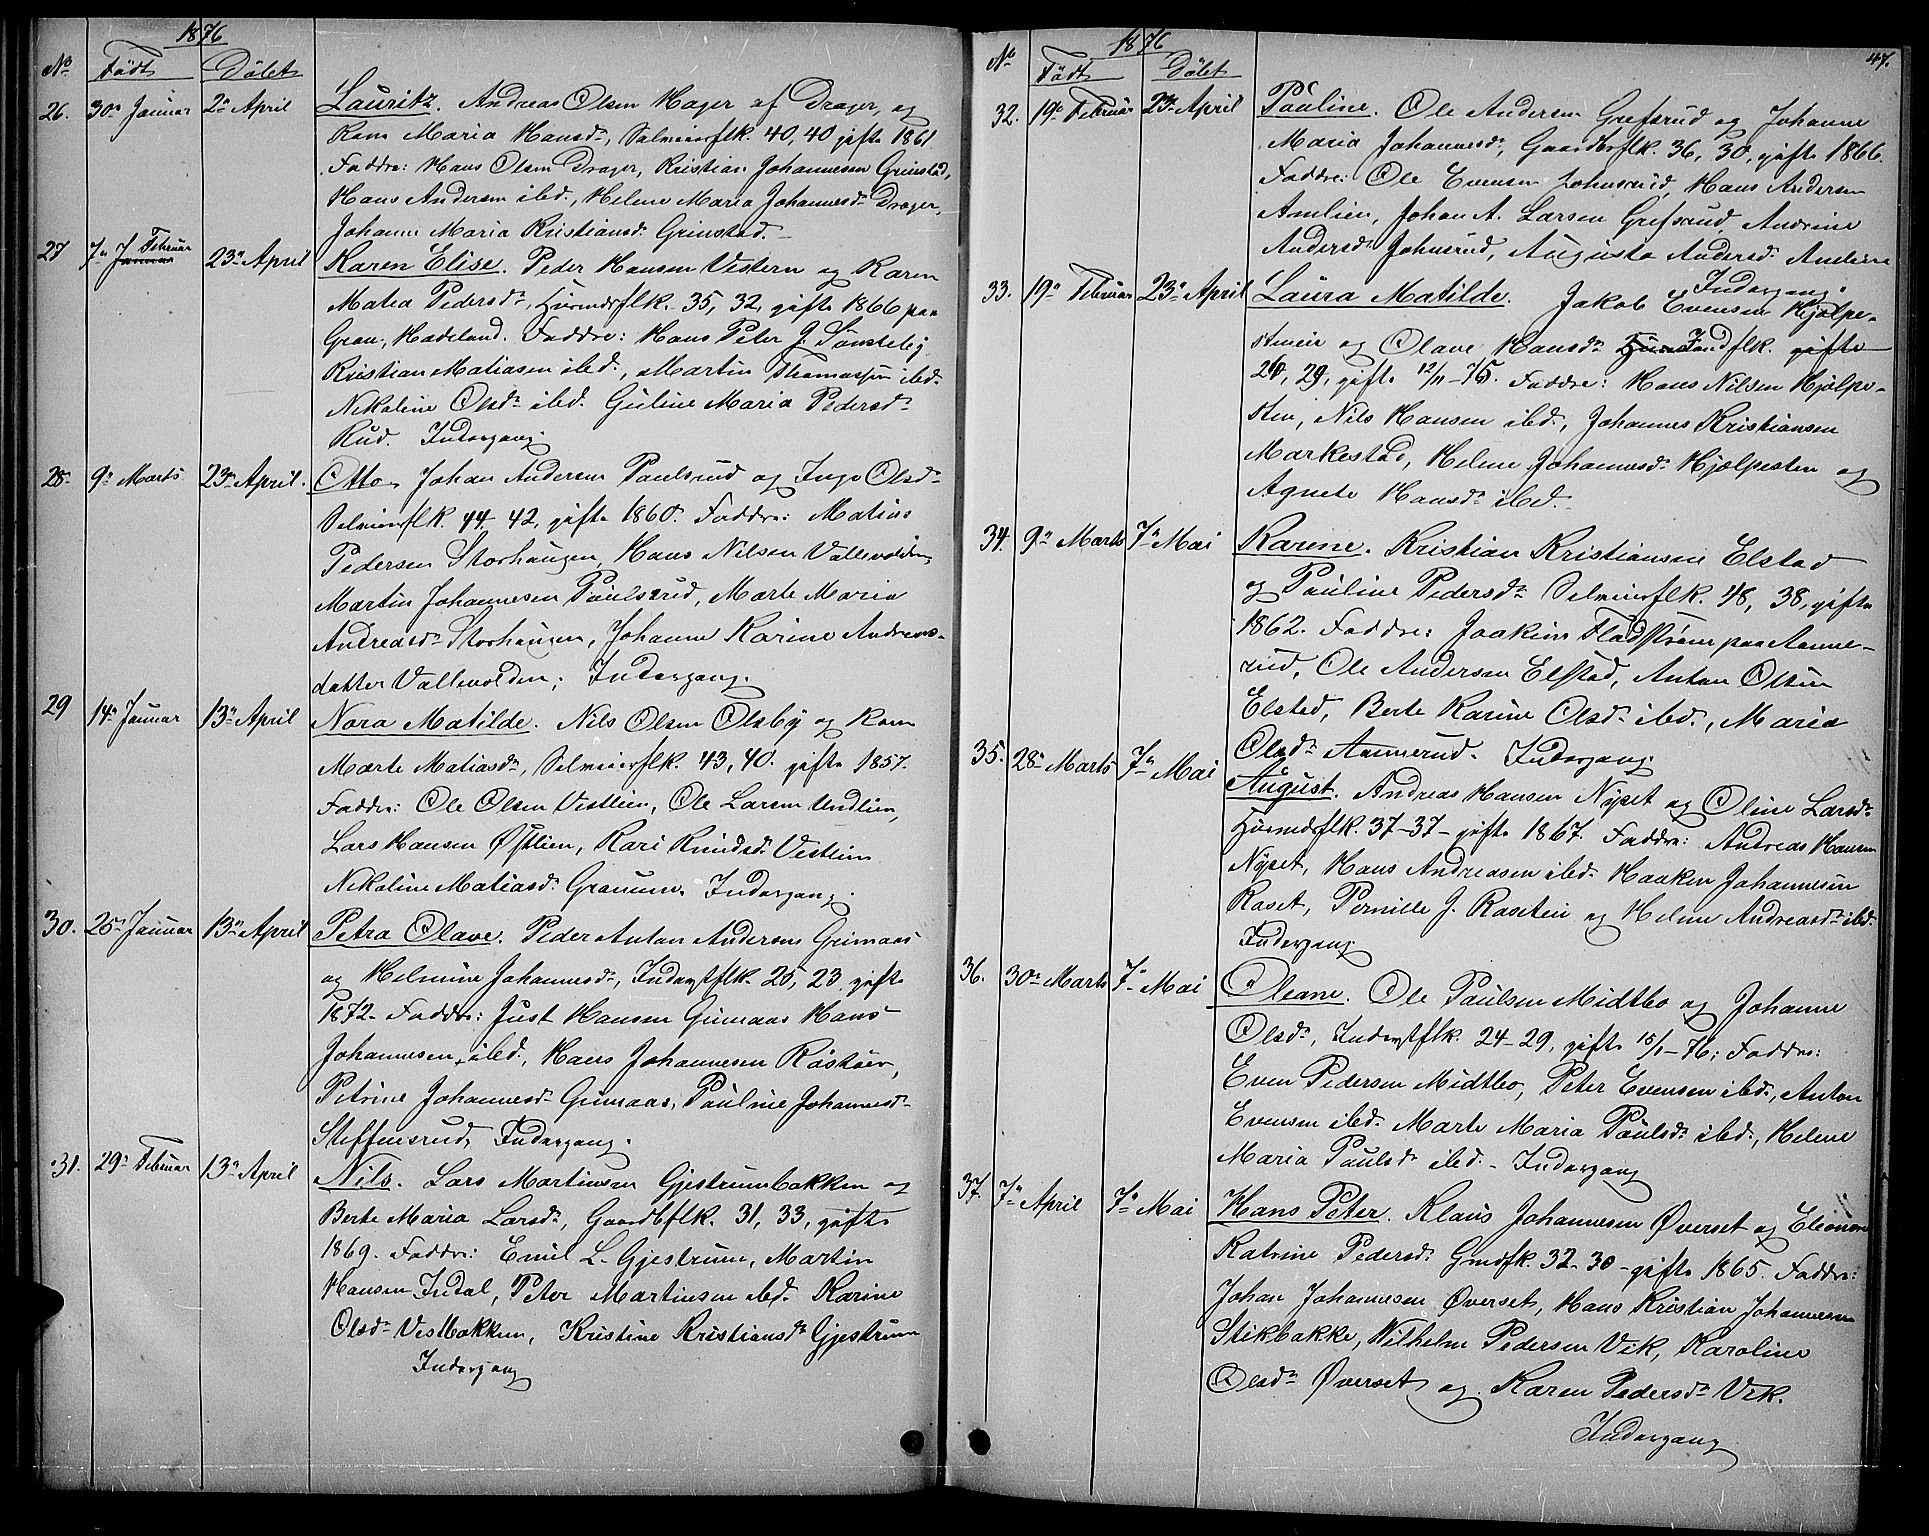 1876
No Födt Döbt
26. 30n Januar 2n April Lauritz. Andreas Olsen Hager af Drager, og
Kone Maria Hansdr, Selveierflk. 40, 40 gifte 1861
Faddre: Hans Olsen Drager, Kristian Johannesen Grinstad,
Hans Andersen ibd., Helene Maria Johannesdr Drager,
Johanne Maria Kristiansdr Grinstad.
27 7n Januar Februar 23n April Karen Elise. Peder Hansen Vestern og Karen
Matea Pedersdr, Huusmdsflk. 35, 32, gifte 1866 paa
Gran, Hadeland. Faddre: Hans Peter J. Sönsteby
Kristian Matiasen ibd., Martin Thomassen ibd.
Nikoline Olsdr ibd. Guline Maria Pedersdr
Rud. Indergang.
28. 9n Marts 23n April. Otto. Johan Andersen Paulsrud og Inge Olsdr
Selveierflk. 44 - 42, gifte 1860. Faddre: Matias
Pedersen Storhaugen, Hans Nilsen Vallevolden,
Martin Johannesen Paulsrud, Marte Maria
Andreasdr Storhaugen, Johanne Karine Andreas-
datter Vallevolden; Indergang.
29 14n Januar 13n April Nora Matilde. Nils Olsen Olsby og Kone
Marte Matiasdr, Selveierflk. 43, 40. gifte 1857.
Faddre: Ole Olsen Vestlien, Ole Larsen Undlien,
Lars Hansen Østlien, Kari Knudsdr Vestlien
Nikoline Matiasdr Granum. Indergang.
30. 25n Januar 13n April Petra Olave. Peder Anton Andersen Grimaas
og Helmine Johannesdr, Inderstflk. 25, 23, gifte
1872. Faddre: Just Hansen Grimaas Hans
Johannesen ibd., Hans Johannesen Röstöen,
Petrine Johannesdr Grimaas, Pauline Johannesdr
Steffensrud, Indergang.
31. 29n Februar 13n April Nils. Lars Martinsen Gjestrumbakken og
Berte Maria Larsdr, Gaardbflk. 31, 33, gifte
1869. Faddre: Emil L. Gjestrum, Martin
Hansen Indal, Peter Martinsen ibd. Karine
Olsdr Vestbakken, Kristine Kristiansdr Gjestrum
Indergang
1876 47.
No Födt Döbt
32. 19n Februar 23n April Pauline. Ole Andersen Grefsrud og Johanne
Maria Johannesdr, Gaardbrflk. 36, 30, gifte 1866.
Faddre: Ole Evensen Johnsrud, Hans Andersen
Amlien, Johan A. Larsen Grefsrud, Andrine
Andersdr Johnsrud, Augusta Andersdr Amlien
Indergang.
33. 19n Februar 23n April Laura Matilde. Jakob Evensen Hjelpe-
stuen og Olave Hansdr Huus Indflk. gifte
29, gifte 12/11 - 75. Faddre: Hans Nilsen Hjelpe-
sten, Nils Hansen ibd., Johannes Kristiansen
Markestad, Helene Johannesdr Hjelpesten og
Agnete Hansdr ibd.
34. 9n Marts 7n Mai Karene. Kristian Kristiansen Elstad
og Pauline Pedersdr Selveierflk. 48, 38, gifte
1862. Faddre: Joakim Fladström paa Anne-
rud, Ole Andersen Elstad, Anton Olsen
Elstad, Berte Karine Olsdr ibd., Maria
Olsdr Annerud. Indergang.
35. 28n Marts 7n Mai August. Andreas Hansen Nyset og Oline Larsdr
Huusmdsflk. 37-37- gifte 1867. Faddre: Andreas Hansen
Nyset, Hans Andreasen ibd. Haaken Johannesen
Raset, Pernille J. Raseteie og Helene Andreasdr ibd.
Indergang.
36. 30n Marts 7n Mai Oleane. Ole Paulsen Midtbo og Johanne
Olsdr, Inderstflk. 24-29, gifte 15/1-76; Faddre:
Even Pedersen Midtbo, Peter Evensen ibd., Anton
Evensen ibd. Marte Maria Paulsdr ibd., Helene
Maria Paulsdr ibd. - Indergang
37. 7n April 7n Mai Hans Peter. Klaus Johannesen Øverset og Eleonore
Katrine Pedersdr Gmdfk. 32-30 - gifte 1865. Faddre:
Johan Johannesen Øverset, Hans Kristian Johannesen
Stikbakke, Wilhelm Pedersen Vik, Karoline
Olsdr Øverset og Karen Pedersdr Vik.
Indergang